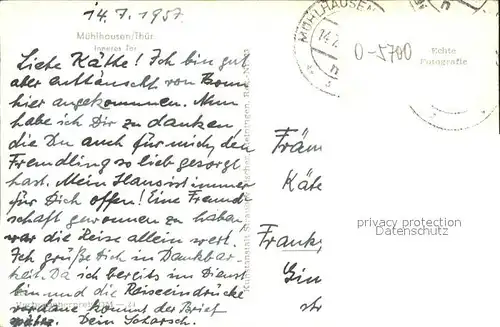 14.7.1957.
Mühlhausen/Thür.
Inneres Tor
Liebe Käthe! Ich bin gut
aber enttäuscht von Bonn
hier angekommen. Nun
habe ich Dir zu danken
die Du auch für mich den
Fremdling so lieb gesorgt
hast. Mein Haus ist immer
für Dich offen! Eine Freund
schaft gewonnen zu haben
war die Reise allein wert.
Ich grüße Dich in Dankbar-
keit. Da ich bereits im Dienst
bin und die Reiseeindrücke
verdaue kommt der Brief
später. Dein
MÜHLHAUSEN
0-5700
Echte
Fotografie
Fräu
Käte
Frank
privacy protection
Datenschutz